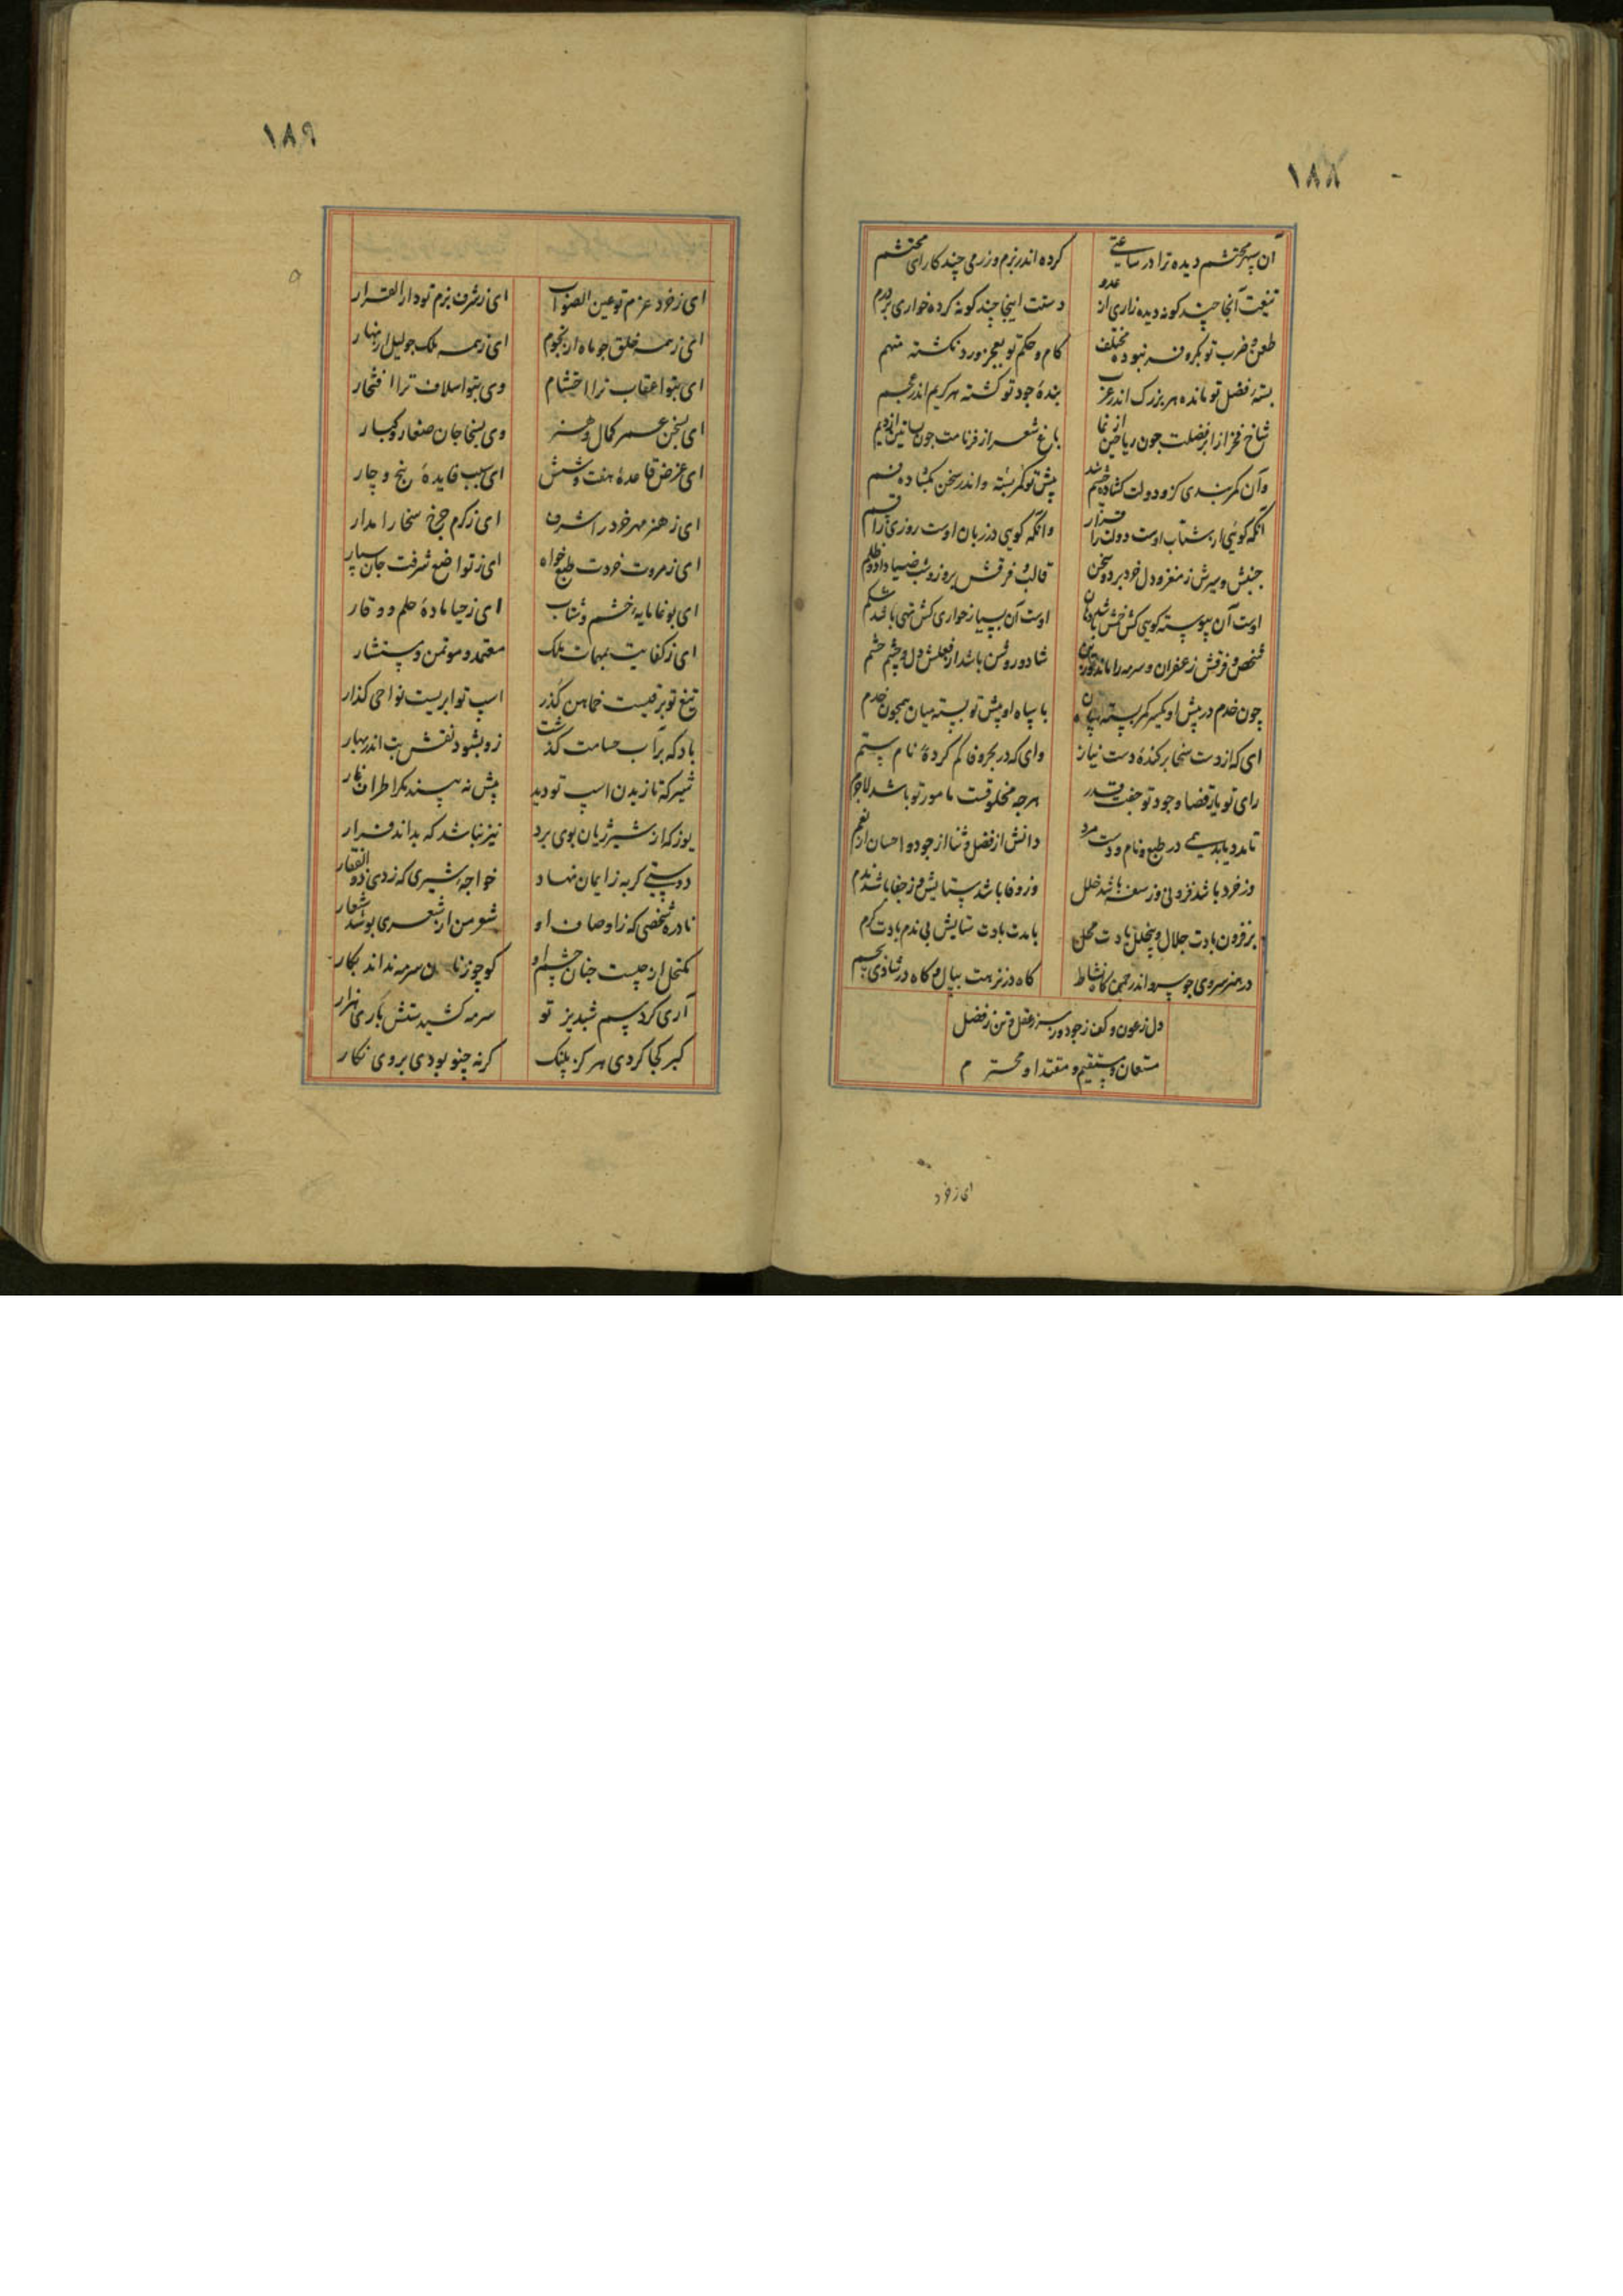 ۱۸۸
آن سپهر محتشم دیده ترا در ساعتی کرده اندر بزم و رزمی چند کارای محتشم
تیغت آنجا چند کونه دیده زاری از عدو دستت اینجا چند کونه کرده خواری بر درم
طعن و ضرب تو بکر و فر نبوده مختلف کام و حکم تو بعجز و رد نکشته متهم
بستهٔ فضل تو مانده هر بزرک اندر عرب بندهٔ جود تو کشته هر کریم اندر عجم
شاخ فخر از ابر فضلت چون ریاحین از نما باغ شعر از فر نامت چون بساتین از دیم
وآن کمربندی کزو دولت کشاده شد چشم پیش تو کمر بسته و اندر سخن بکشاده فم
آنکه کویی از شتاب اوست دولت را قرار وانکه کویی در زبان اوست روزی را قسم
جنبش و سیرش ز مغز و دل خرد برد و سخن قالب و فرقش بروز و شب ضیا داد و ظلم
اوست آن پیوسته کویی کش خمش باشد دهان اوست آن بسیار خواری کش تهی باشد شکم
شخص و فرقش زعفران و سرمه را ماند شاد و روشن باشد از فعلش دل و چشم حشم
چون خدم در پیش او یکسر کمر بسته میان با سپاه او پیش تو بسته میان همچون خدم
ای که از دست سخا برکندهٔ دست نیاز وای که در بحر وفا کم کردهٔ نام ستم
رای تو یار قضا و جود تو جفت قدر هرچه مخلوقست مامور تو باشد لاجرم
تا مدد یابد همی در طبع و نام و دست مرد دانش از فضل و ثنا از جود و احسان از نعم
وز خرد باشد فزونی وز سفه باشد خلل وز وفا باشد ستایش وز جفا باشد ندم
بر فزون بادت جلال و بیخلل بادت محل بامدت بادت ستایش بی ندم بادت کرم
در هنر سروی چو سرو اندر چمن کاه نشاط کاه در نزهت ببال و کاه در شادی بچم
دل ز عون و کف ز جود و سر ز عقل و تن ز فضل
مستعان و مستقیم و مقتدا و محترم
ای زخرد
۱۸۹
ای ز خرد عزم تو عین الصواب ای ز شرف بزم تو دار القرار
ای ز همه خلق چو ماه از نجوم ای ز همه ملک چو لیل از نهار
ای بتو اعقاب ترا احتشام وی بتو اسلاف ترا افتخار
ای بسخن عمر کمال و هنر وی بسخا جان صغار و کبار
ای غرض قاعدهٔ هفت و شش ای سبب فایدهٔ پنج و چار
ای ز هنر مهر خرد را شرف ای ز کرم چرخ سخا را مدار
ای ز مروت خردت طبع خواه ای ز تواضع شرفت جان سپار
ای بوغا مایهٔ خشم و شتاب ای ز حیا مادهٔ حلم و وقار
ای ز کفایت بمهمات ملک معتمد و موتمن و مستشار
تیغ تو برقیست خماهن کذر اسپ تو ابریست نواحی کذار
باد که بر آب حسامت کذشت زو بشود نقش بت اندر بهار
شیر که تازیدن اسپ تو دید پیش نه بیند مکر اطراف غار
یوز که از شیر ژیان بوی برد نیز نباشد که بداند فرار
دوستی کربه ز ایمان نهاد خواجه شیری که زدی ذو الفقار
نادره شخصی که ز اوصاف او شعر من از شعری پوشد شعار
مکتحل از چیست چنان چشم او کو چو زنان سرمه نداند بکار
آری کرد سم شبدیز تو سرمه کشیدستش باری هزار
کبر کجا کردی هرکز پلنک کرنه چنو بودی بروی نکار